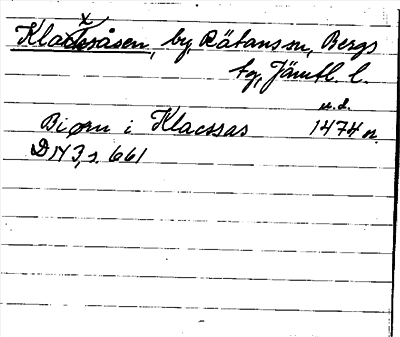 Klacksåsen, by, Rätans sn, Bergs
tg, Jämtl. l.
u. d.
Biørn i Klacssas 1474 n.
DN 3, s. 661